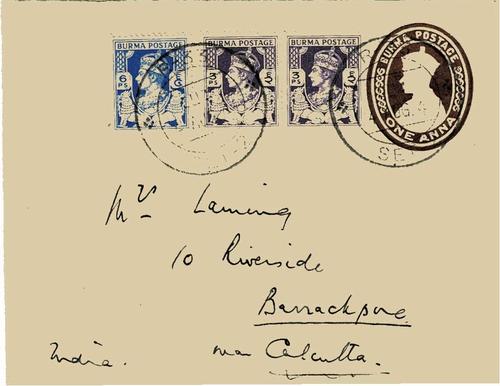 BURMA POSTAGE
6 PS
BURMA POSTAGE
3 PS
BURMA POSTAGE
3 PS
BURMA POSTAGE
ONE ANNA
Laming
10 Riverside
Barrackpore
near Calcutta.
India.